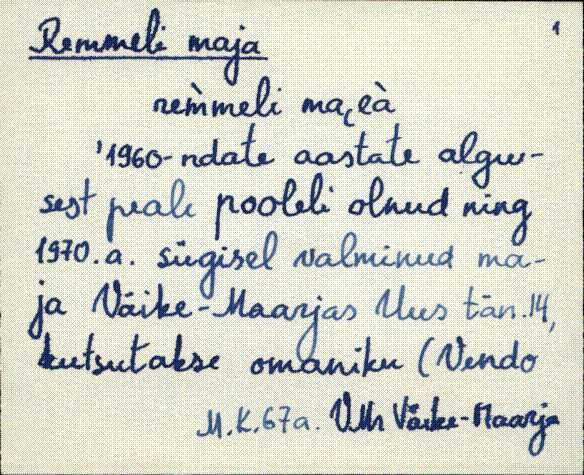 Remmeli maja 1
rem̀meli maꞔeà
'1960-ndate aastate algu-
sest peale pooleli olnud ning
1970.a. sügisel valminud ma-
ja Väike-Maarjas Uus tän.14,
kutsutakse omaniku (Vendo
M.K.67a. VMr Väike-Maarja